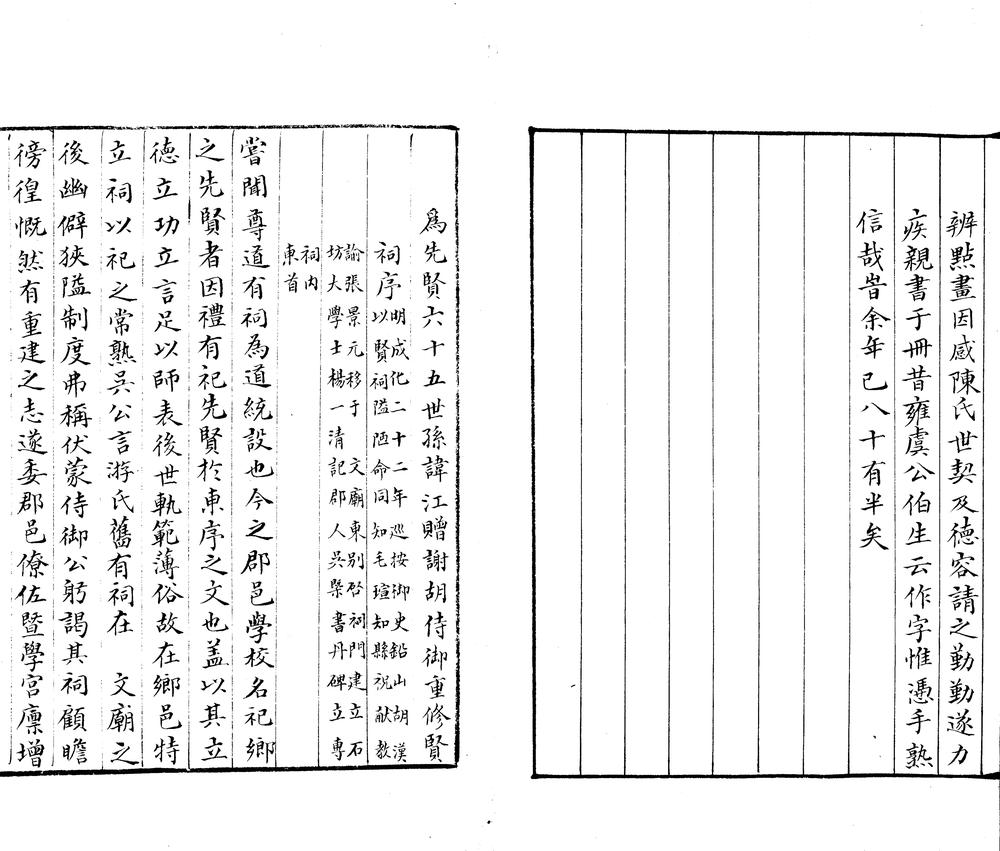 辨點畫因感陳氏世契及德容請之勤勤遂力
疾親書于冊昔雍虞公伯生云作字惟憑手熟
信哉旹余年已八十有半矣
爲先賢六十五世孫諱江贈謝胡侍御重修賢
祠序
明成化二十二年巡按御史鉛山胡漢
以賢祠隘陋命同知毛瑄知縣祝獻教
諭張景元移于 文廟東別啓祠門建立石
坊大學士楊一清記郡人吳檠書丹碑立專
祠内
東首
嘗聞尊道有祠為道統設也今之郡邑學校名祀鄉
之先賢者因禮有祀先賢於東序之文也蓋以其立
德立功立言足以師表後世軌範薄俗故在鄉邑特
立祠以祀之常熟吳公言游氏舊有祠在 文廟之
後幽僻狹隘制度弗稱伏蒙侍御公躬謁其祠顧瞻
徬徨慨然有重建之志遂委郡邑僚佐暨學宮廩增